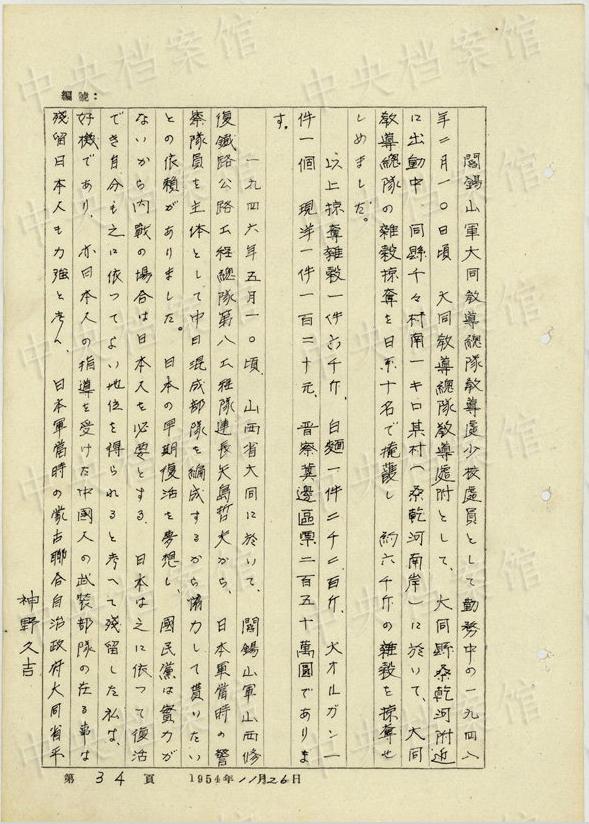 編號:
閻錫山軍大同教導總隊教導處少校處員として勤務中の一九四八
年二月一〇日頃 大同教導總隊教導處附として、大同縣桑乾河附近
に出動中 同縣千々村南一キロ某村(桑乾河南岸)に於いて、大同
教導總隊の雑穀掠奪を日系十名で掩護し 約六千斤の雑穀を掠奪せ
しめました。
以上掠奪雑穀一件六千斤、白麺一件二千二百斤、大オルガン一
件一個 現洋一件一百二十元、晋察冀邊區票二百五十萬圓でありま
す。
一九四六年五月一〇頃、山西省大同に於いて、閻錫山軍山西修
復鐵路公路工程總隊第八工程隊連長矢島哲夫から、日本軍當時の警
察隊員を主体として中日混成部隊を編成するから協力して貰いたい
との依頼がありました。日本の早期復活を夢想し、國民黨は實力が
ないから内戰の場合は日本人を必要とする、日本は之に依つて復活
でき自分も之に依つてよい地位を得られると考へて残留した私は、
好機であり、亦日本人の指導を受けた中國人の武装部隊の在る事は
残留日本人も力強と考へ、日本軍當時の蒙古聯合自治政府大同省平
神野久吉
第34頁 1954年11月26日
中央档案馆